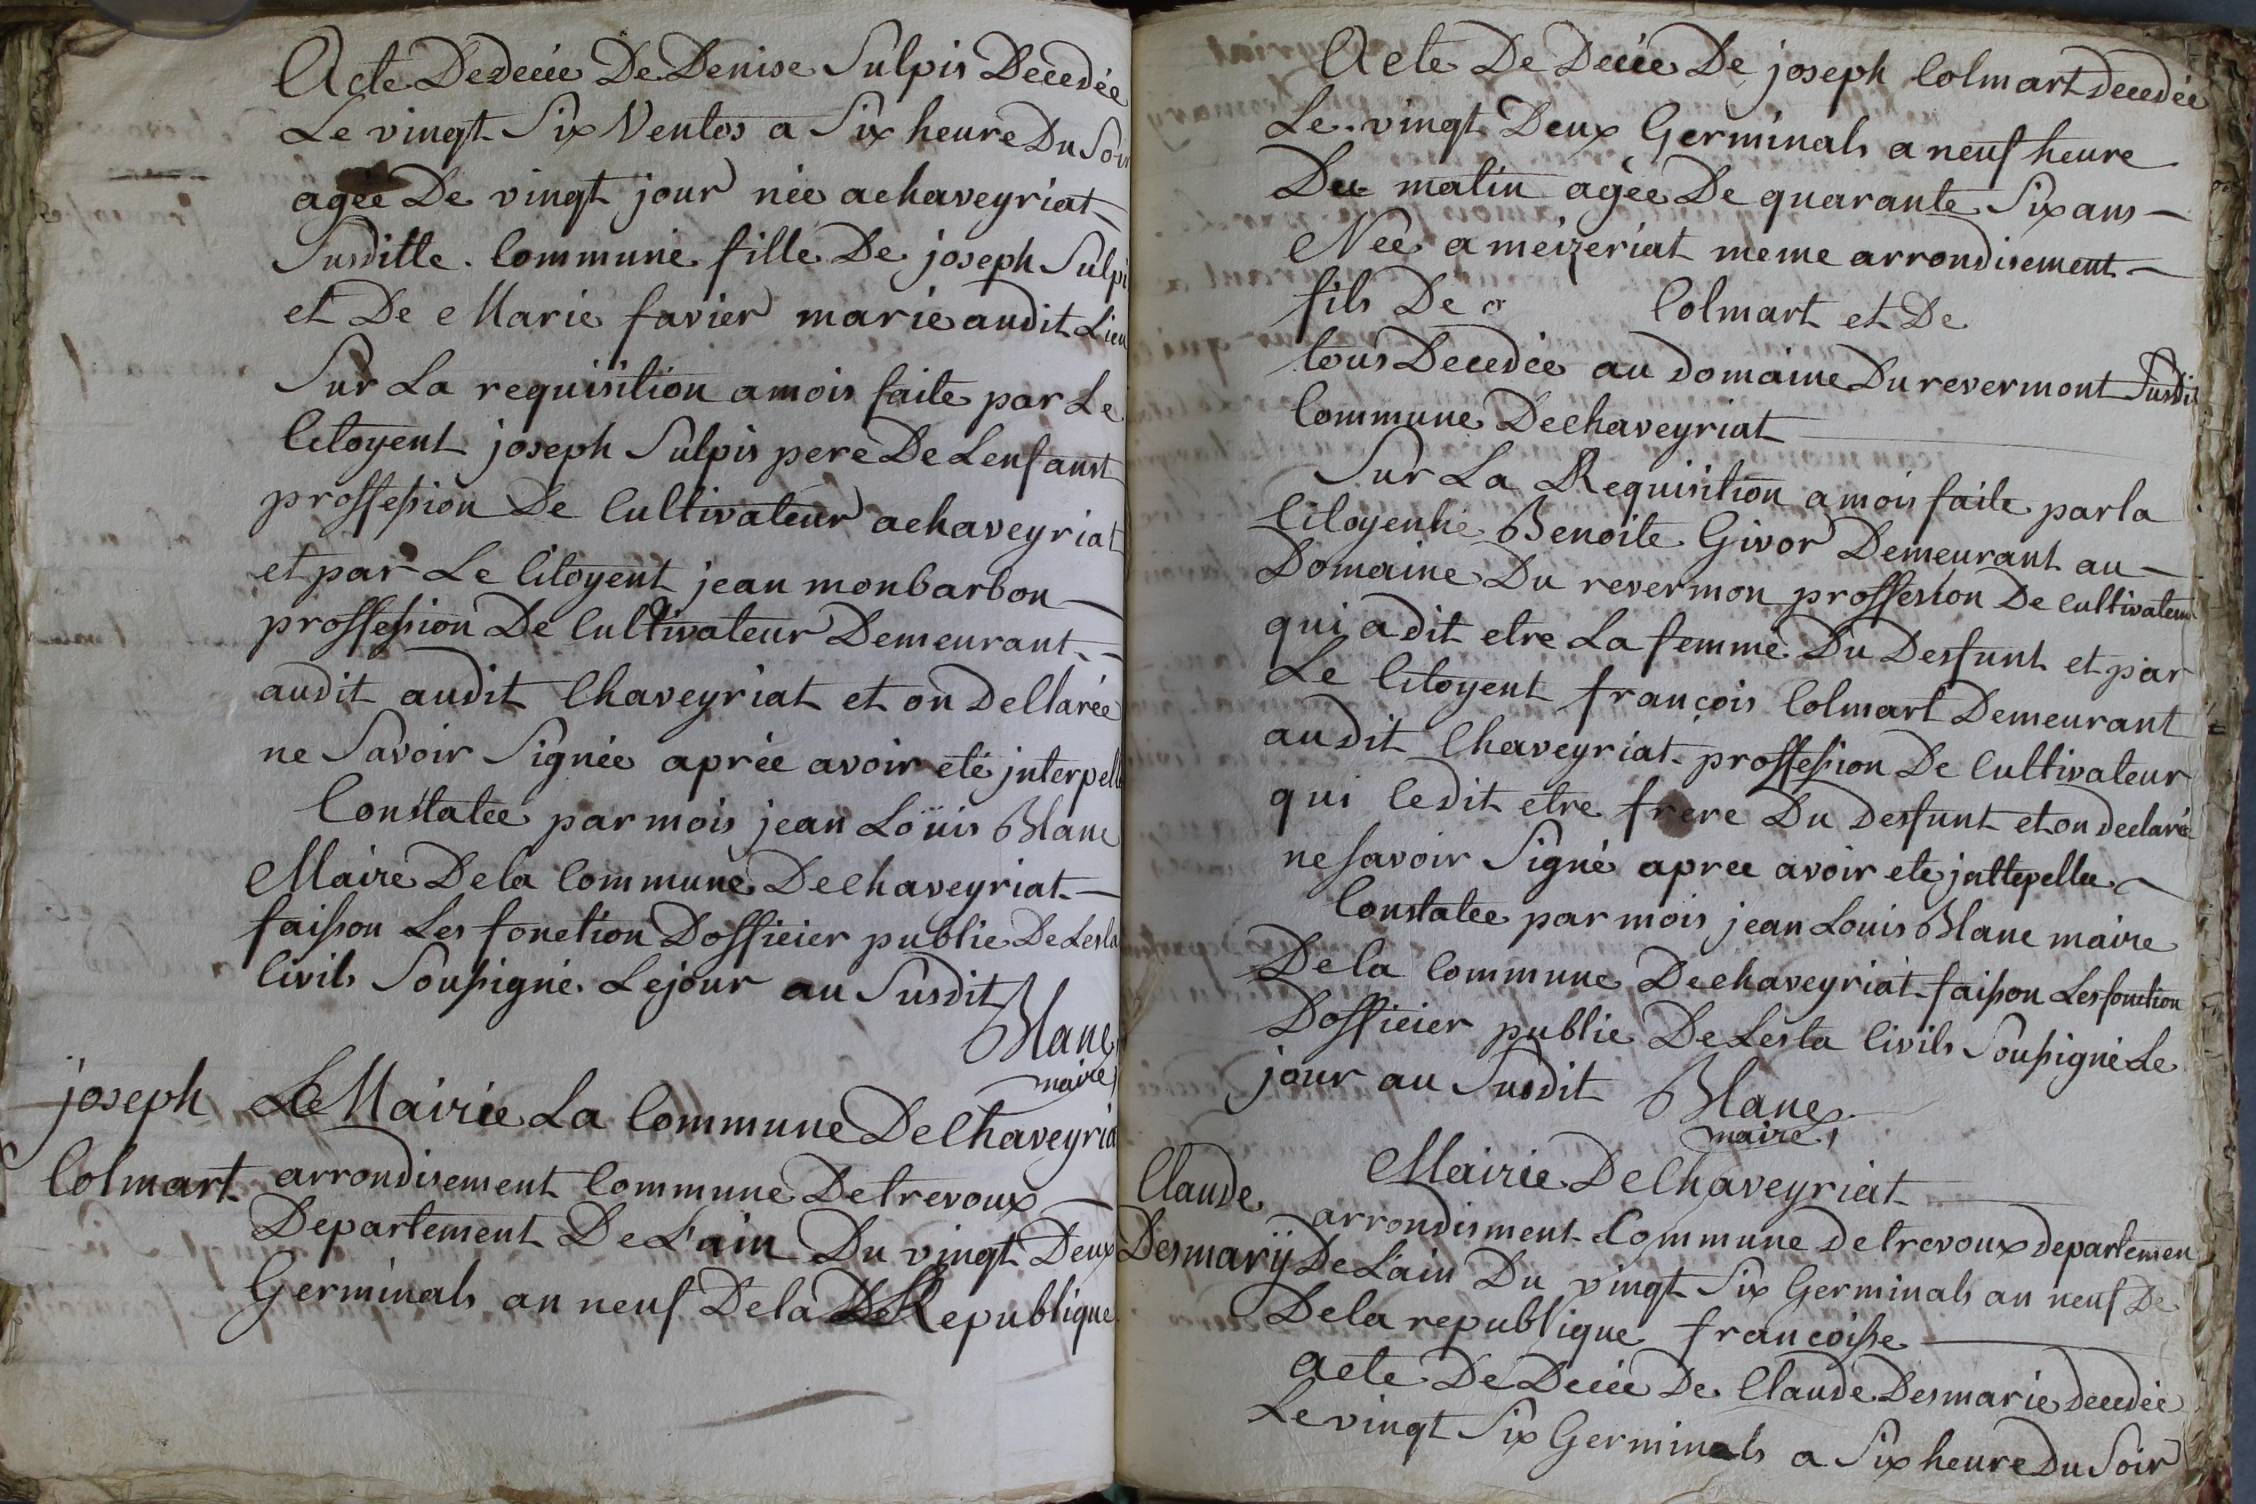 Acte Dedecée De Denise Sulpis Decedée
Le vingt Six Ventos a Six heure Du Soir
agée De vingt jour née achaveyriat
Susditte Commune fille De joseph Sulpi
et De Marie favier marie audit Lieu
Sur La requisition amois faite par Le
Citoyent joseph Sulpis pere De Lenfanst
proffession De Cultivateur achaveyriat
et par Le Citoyent jean monbarbon
proffession De Cultivateur Demeurant
audit audit Chaveyriat et on Dellarée
ne Savoir Signée aprée avoir eté jnterpellé
Constatee par mois jean Loüis Blanc
Maire Dela Commune Dechaveyriat
faisson Les fonction Dofficier public De Lesta
Civils Soussigné Lejour au Susdit
Blanc
maire
joseph
Colmart
Le Mairie La Commune De Chaveyria
arrondisement Commune Detrevoux
Departement De L'ain Du vingt Deux
Germinals an neuf Dela Republique
Acte De Decée De joseph Colmart decedée
Le vingt Deux Germinals a neuf heure
Du matin agée De quarante Six ans
Neé a meizeriat meme arrondisement
fils De Colmart et De
tous Decedée au Domaine Du revermont Susdit
Commune Dechaveyriat
Sur La Requisition amois faite parla
Citoyenne Benoite Givor Demeurant au
Domaine Du revermon proffession De cultivateur
qui a dit etre La femme Du Desfunt et par
Le Citoyent françois Colmart Demeurant
audit Chaveyriat proffession De Cultivateur
qui ledit etre frere Du Desfunt et on declaré
ne savoir Signé apree avoir ete jnttepellee
Constatee par mois jean Louis Blanc maire
Dela Commune Dechaveyriat faisson Les fonction
Dofficier public De Lesta Civils Soussigné Le
jour au Susdit
Blanc
maire
Claude
Desmarij
Mairie De Chaveyriat
arrondisment Commune Detrevoux departemen
De L'ain Du vingt Six Germinals an neuf De
Dela republique francoisse
acte De Decée De Claude Desmarie decedée
Le vingt Six Germinals a Six heure Du Soir